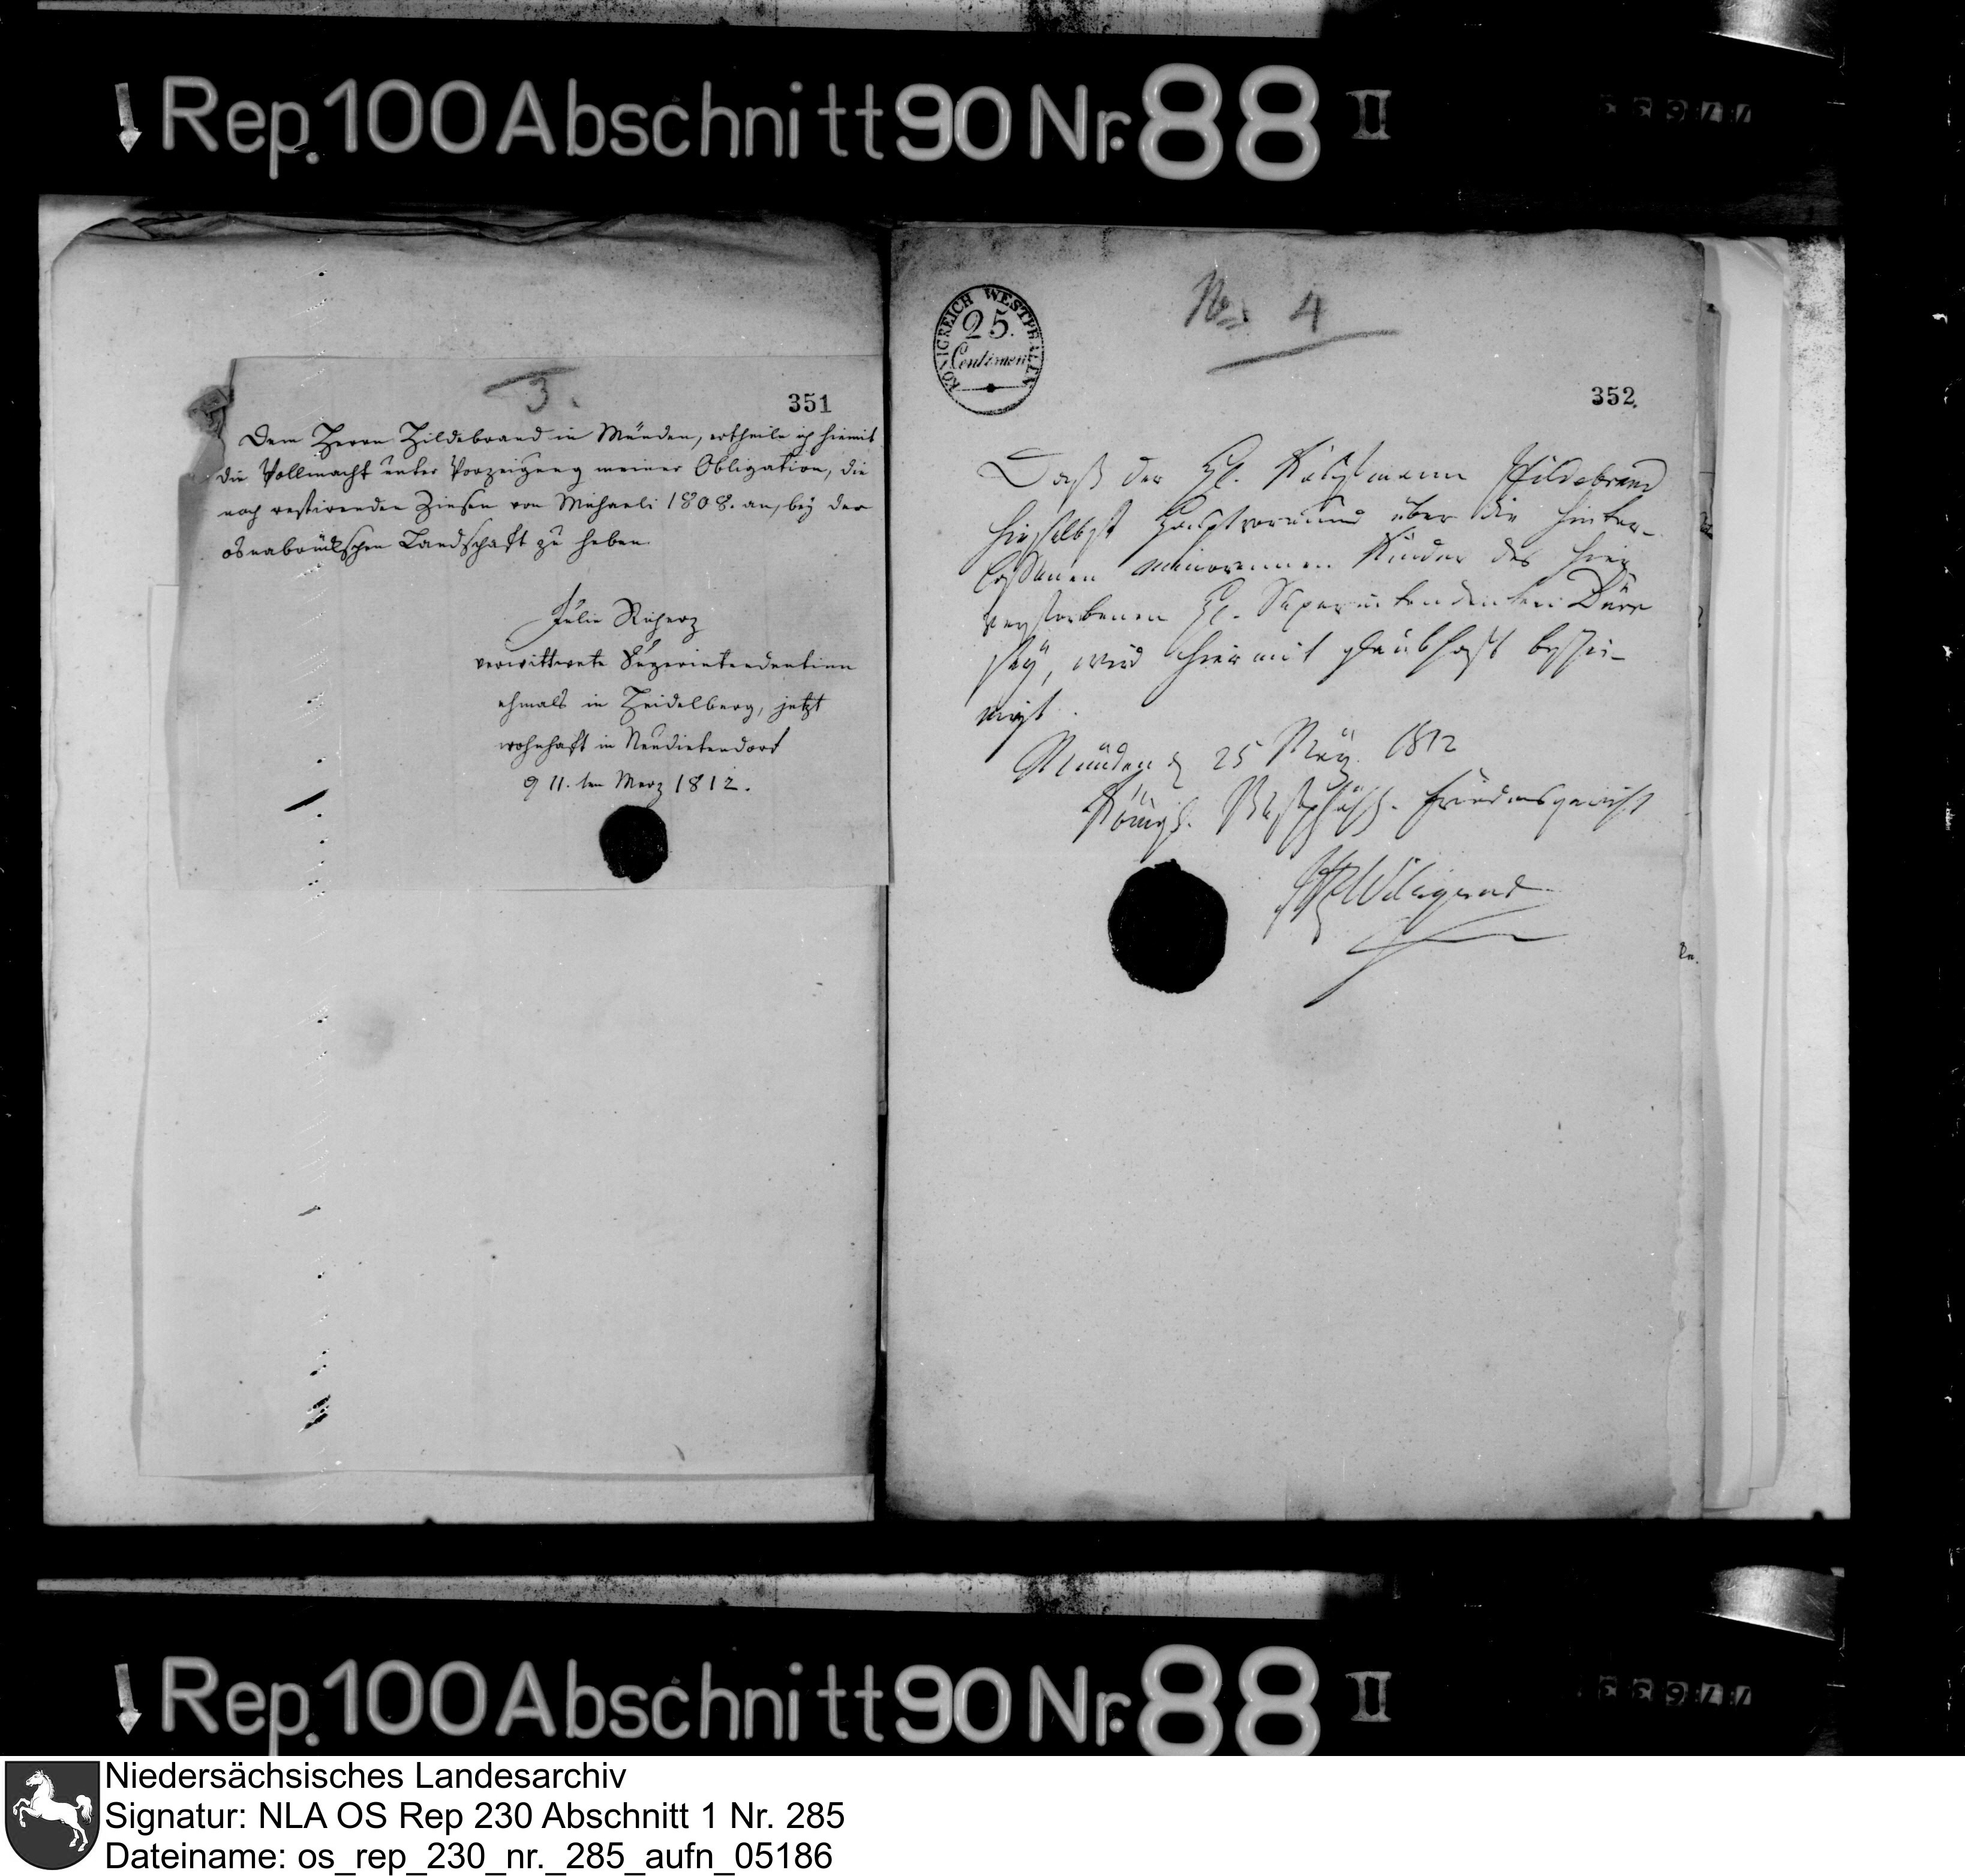 Rep. 100 Abschnitt 90 Nr. 88 II
3.
351
Dem Herrn Hildebrand in Münden, ertheile ich hiemit
die Vollmacht unter Vorzeigung meiner Obligation, die
noch restirenden Zinsen von Michaeli 1808. an, bey der
osnabrückschen Landschaft zu heben.
Julie
verwittwete Superintendentinn
ehmals in Heidelberg, jetzt
wohnhaft in Neudietendorf
d 11. ten Merz 1812.
KÖNIGREICH WESTPHALEN
25.
Centimen
No 4
352.
Daß der H. Kaufmann Hildebrand
hieselbst Hauptvormund über die hinter-
lassenen minorennen Kinder des hier
verstorbenen H. Superintendenten
sey, wird hiermit glaubhaft beschei-
nigt.
Münden d 25 März 1812
Königl. Westphäl. Friedensgericht
Rep. 100 Abschnitt 90 Nr. 88 II
Niedersächsisches Landesarchiv
Signatur: NLA OS Rep 230 Abschnitt 1 Nr. 285
Dateiname: os_rep_230_nr._285_aufn_05186